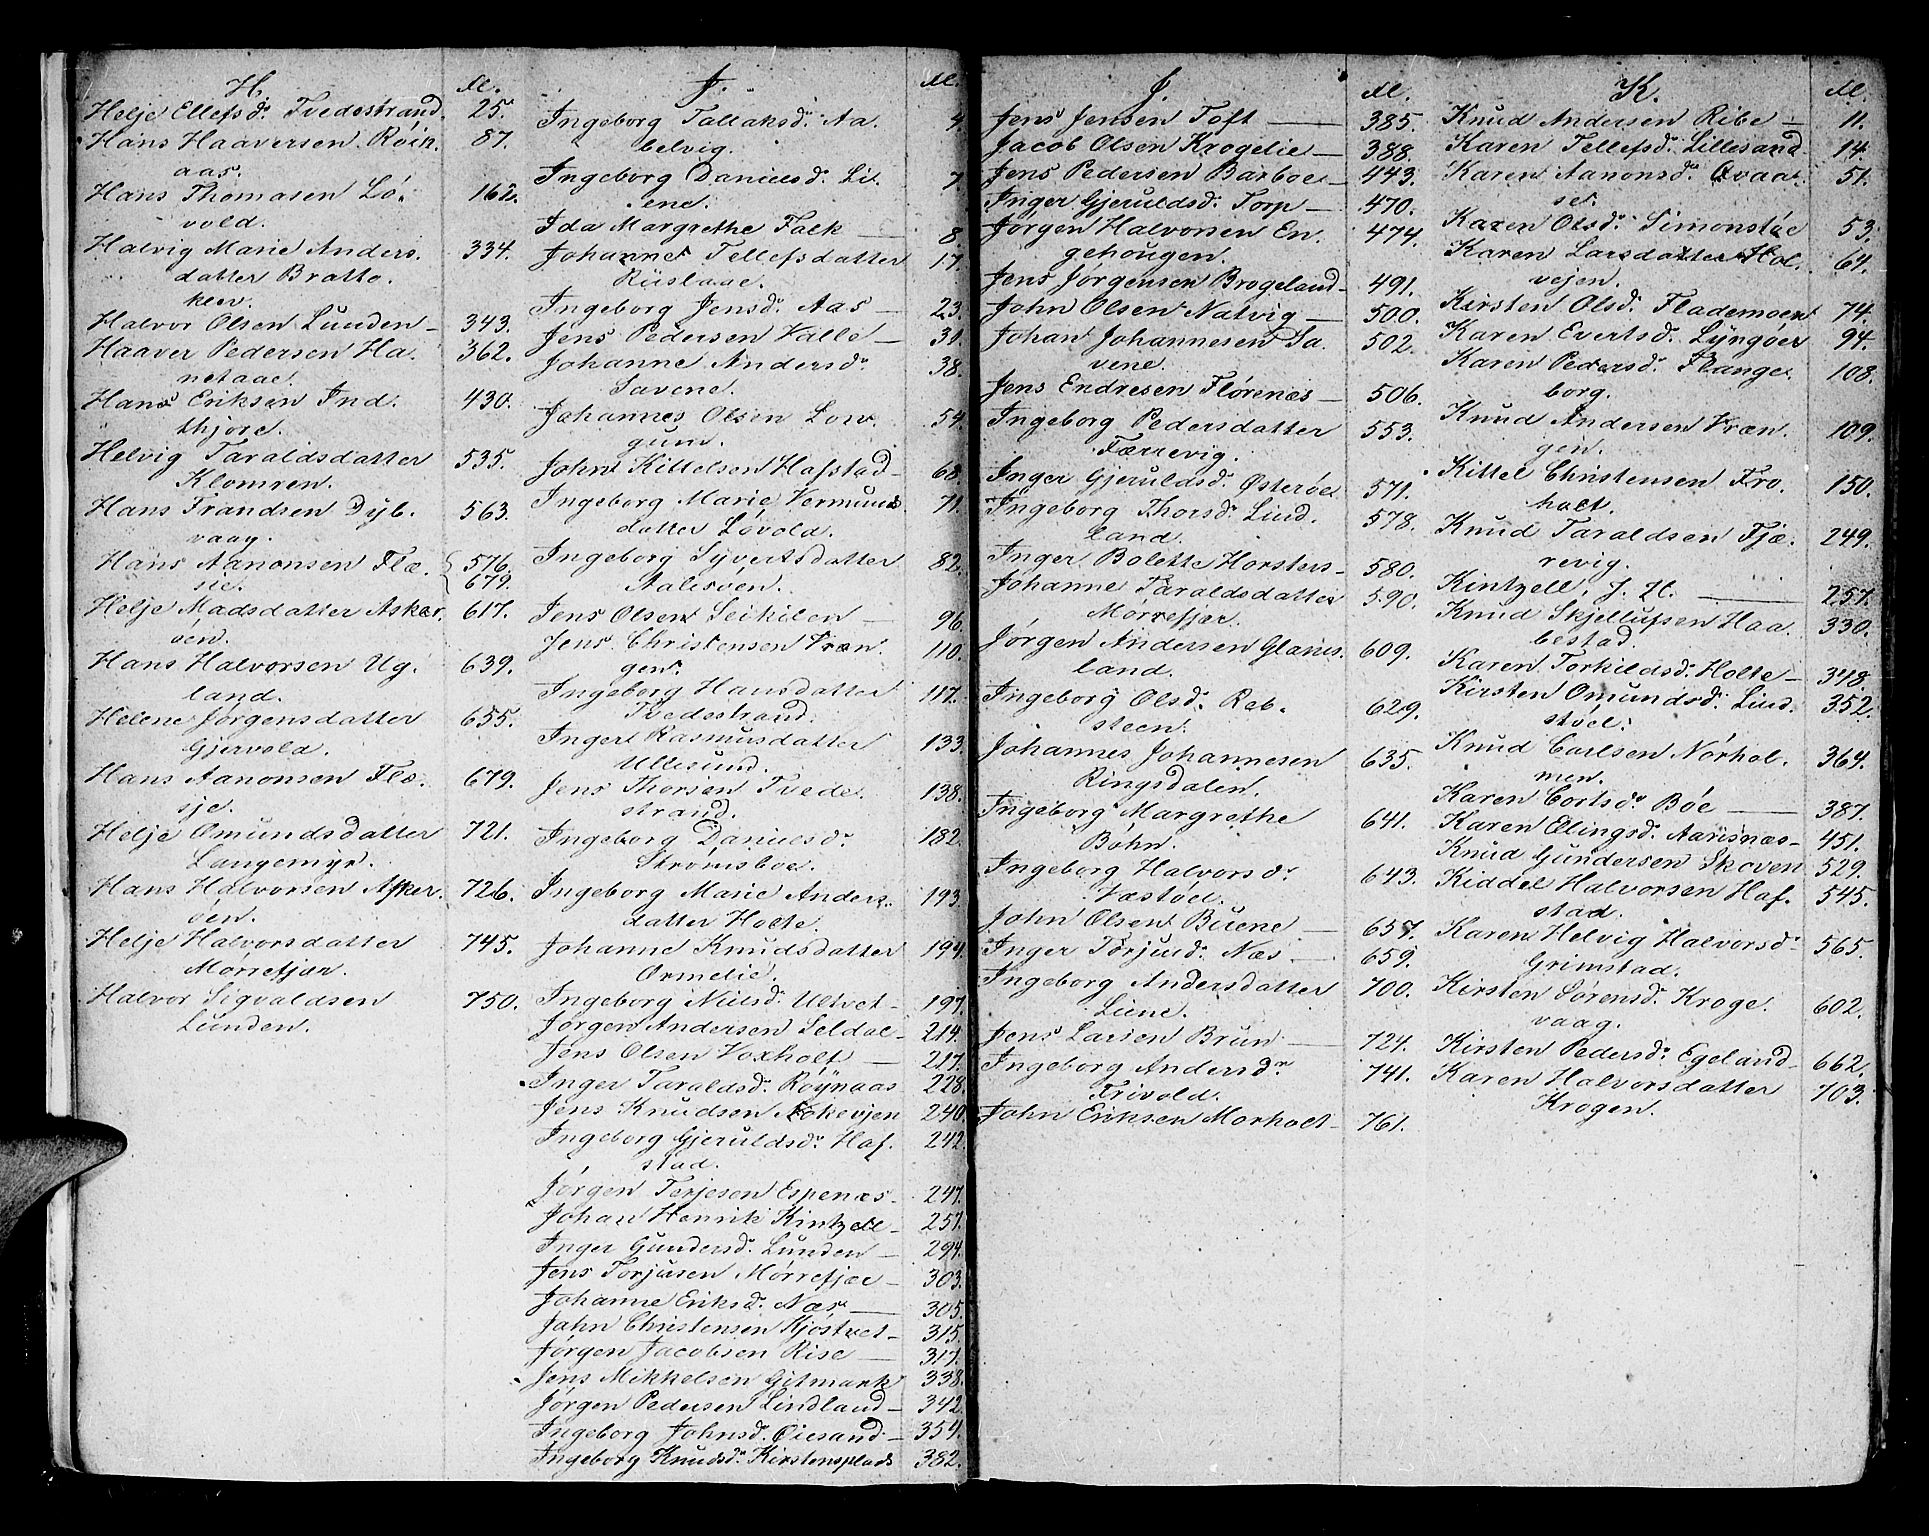 H. N.
Helje Ellefsd. Tvedestrand. 25.
Hans Haaversen Röik- 87.
aas.
Hans Thomasen Lö- 162.
vold.
Halvig Marie Anders- 334.
datter Bratte-
klev.
Halvor Olsen Lunden - 343.
Haaver Pedersen Ha- 362.
netaae.
Hans Eriksen Ind- 430.
thjore.
Helvig Taraldsdatter 535.
Klomren.
Hans Frandsen Dyb- 563.
vaag.
Hans Aanonsen Flæ- 576.
sie. 679.
Helje Madsdatter Asker- 617.
öen.
Hans Halvorsen Ug- 639.
land.
Helene Jørgensdatter 655.
Gjervold.
Hans Aanonsen Flæ- 679.
sje.
Helje Omundsdatter 721.
Langemyr.
Hans Halvorsen Asker- 726.
öen.
Helje Halvorsdatter 745.
Mørrefjær.
Halvor Sigvaldsen 750.
Lunden.
J. N.
Ingeborg Tallaksd. Aa- 4.
belvig.
Ingeborg Danielsd. Lil- 7.
lene.
Ida Margrethe Falk — 8.
Johannes Tellefsdatter 17.
Riislaae.
Ingeborg Jensd. Aas — 23.
Jens Pedersen Valle — 31.
Johanne Andersd. 38.
Savene.
Johannes Olsen Low- 54.
gum.
John Kittelsen Hafstad - 68.
Ingeborg Marie Vermunds- 71.
datter Løvold.
Ingeborg Syvertsdatter 82.
Aalisöen.
Jens Olsen Seikilen — 96.
Jens Christensen Vræn- 110.
gen.
Ingeborg Hansdatter 117.
Tvedestrand.
Inger Rasmusdatter 133.
Ullesund.
Jens Thorsen Tvede- 138.
strand.
Ingeborg Danielsd. 182.
Strømsboe.
Ingeborg Marie Anders- 193.
datter Holte.
Johanne Knudsdatter 194.
Ormelie.
Ingeborg Nilsd. Ultvet - 197.
Jørgen Andersen Seldal - 214.
Jens Olsen Voxholt — 217.
Inger Taraldsd. Röynaas 228.
Jens Knudsen Askevjen 240.
Ingeborg Gjeruldsd. Haf- 242.
stad.
Jørgen Terjesen Espenæs - 247.
Johan Henrik Kintzell - 257.
Inger Gundersd. Lunden — 294.
Jens Torjusen Mørrefjær — 303.
Johanne Eriksd. Næs — 305.
John Christensen Kjöstvet - 315.
Jørgen Jacobsen Rise — 317.
Jens Mikkelsen Gitmark 338.
Jørgen Pedersen Lindland - 342.
Ingeborg Johnsd. Oiesand - 354.
Ingeborg Knudsd. Kirstensplads 382.
J. N.
Jens Jensen Toft — 385.
Jacob Olsen Krogelie — 388.
Jens Pedersen Barboe - 443.
Inger Gjeruldsd. Torp — 470.
Jørgen Halvorsen En- 474.
gehougen.
Jens Jørgensen Brogeland - 491.
John Olsen Natvig — 500.
Johan Johannesen Sa- 502.
vene.
Jens Endresen Flørenæs - 506.
Ingeborg Pedersdatter 553.
Færrevig.
Inger Gjeruldsd. Østerøe 571.
Ingeborg Thorsd. Lind- 578.
land.
Inger Bolette Horsters - 580.
Johanne Taraldsdatter 590.
Mørrefjær.
Jørgen Andersen Glams- 609.
land.
Ingeborg Olsd. Reb- 629.
steen.
Johannes Johannesen 635.
Ringsdalen.
Ingeborg Margrethe 641.
Böhn.
Ingeborg Halvorsdr 643.
Vastöel.
John Olsen Buene — 657.
Inger Torjusd. Næs — 659.
Ingeborg Andersdatter 700.
Liene.
Jens Larsen Brun — 724.
Ingeborg Andersdr 741.
Trivold.
John Eriksen Morholt - 761.
K. N.
Knud Andersen Ribe — 11.
Karen Tellefsd. Lillesand 14.
Karen Aanonsd. Qvaal- 51.
se.
Karen Olsd. Simonstøe 53.
Karen Larsdatter Hol- 61.
vejen.
Kirsten Olsd. Flademoen 74.
Karen Evertsd. Lyngöer 94.
Karen Pedersd. Flange- 108.
borg.
Knud Andersen Vræn- 109.
gen.
Kittel Christensen Fro- 150.
holt.
Knud Taraldsen Fjæ- 249.
revig.
Kintzell, J. H. — 257.
Knud Skjellufsen Haa- 330.
bestad.
Karen Torkildsd. Holte — 348.
Kirsten Omundsd. Lind- 352.
støel.
Knud Carlsen Nörhol- 364.
men.
Karen Cortsd. Böe — 387.
Karen Ellingsd. Aarisnæs - 451.
Knud Gundersen Skoven 529.
Kiddel Halvorsen Haf- 545.
stad.
Karen Helvig Halvorsd. 565.
Grimstad.
Kirsten Sørensd. Kroge- 602.
vaag.
Kirsten Pedersd. Egeland - 662.
Karen Halvorsdatter 703.
Krogen.